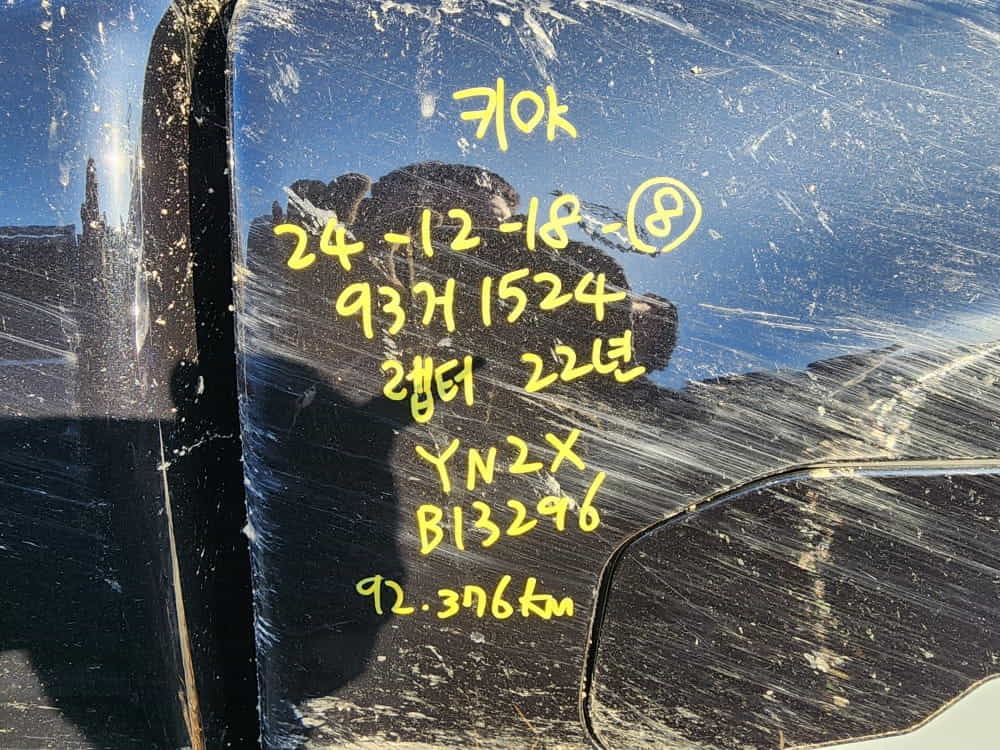 키야
24-12-18-⑧
93거1524
랩터 22년
YN2X
B13296
92.376km